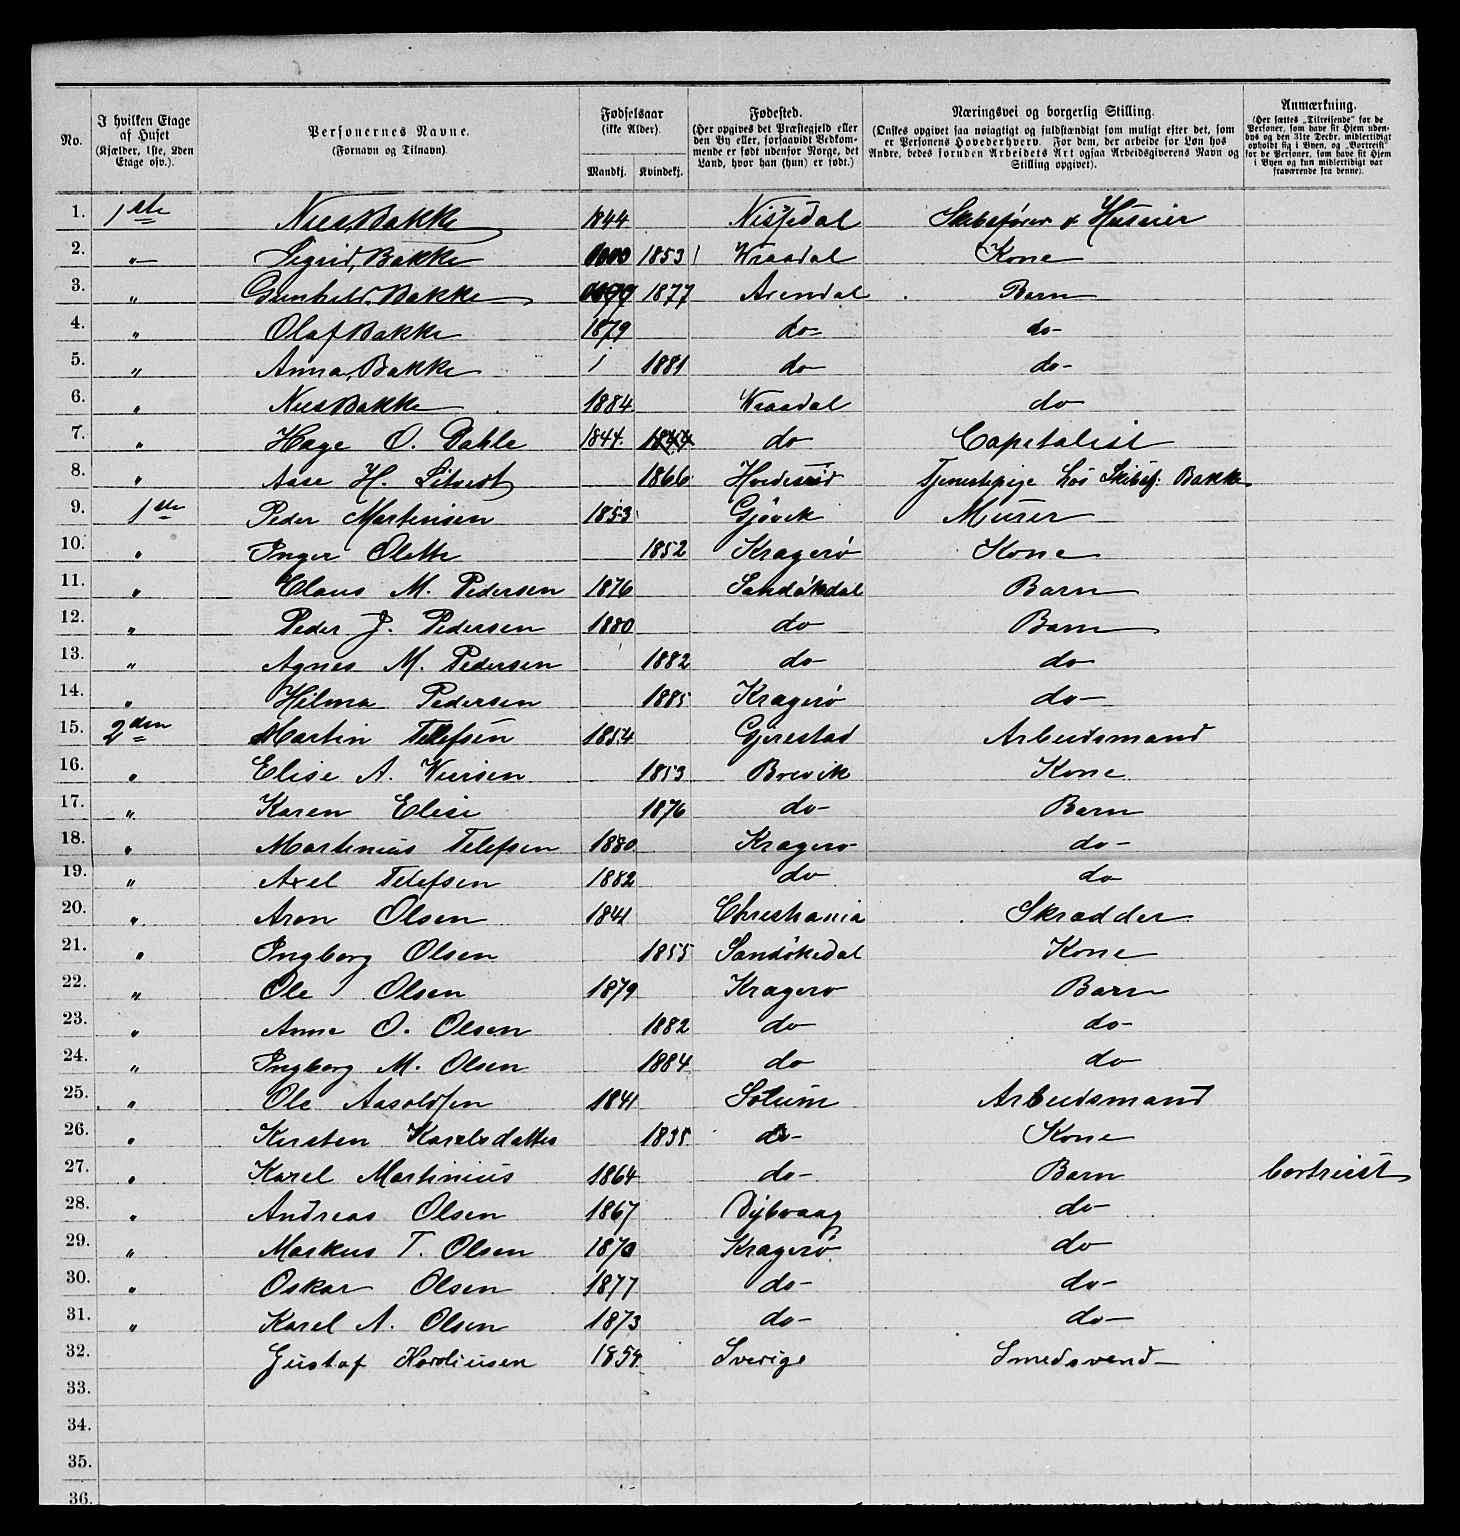 No. | I hvilken Etage af Huset (Kjælder, 1ste, 2den Etage osv.). | Personernes Navne. (Fornavn og Tilnavn). | Fødselsaar (ikke Alder). Mandkj. | Kvindekj. | Fødested. (Her opgives det Præstegjeld eller den By eller, forsaavidt Vedkommende er født udenfor Norge, det Land, hvor han (hun) er født.) | Næringsvei og borgerlig Stilling. (Ønskes opgivet saa nøiagtigt og fuldstændigt som muligt efter det, som er Personens Hovederhverv. For dem, der arbeide for Løn hos Andre, bedes foruden Arbeidets Art ogsaa Arbeidsgiverens Navn og Stilling opgivet). | Anmærkning. (Her sættes „Tilreisende" for de Personer, som have sit Hjem udenbys og den 31te Decbr. midlertidigt opholdt sig i Byen, og „Bortreist" for de Personer, som have sit Hjem i Byen og kun midlertidigt var fraværende fra denne).
1. 1ste Niels Bakke 1844 Nissedal Skibsfører & Huseier
2. " Sigrid Bakke 1853 Wraadal Kone
3. " Gunhild Bakke 1877 Arendal Barn
4. " Olaf Bakke 1879 do- do-
5. " Anna Bakke 1881 do do-
6. " Niels Bakke 1884 Wraadal do
7. " Hage O. Dahle 1844. 1844 do Capitalist
8. " Aase H. 1866 Tjenestepige hos Skibsf: Bakke
9. 1ste Peder Martinsen 1853 Gjøvik Murer
10. " Inger Olette 1852 Kragerø Kone
11. " Claus M. Pedersen 1876 Sandøkedal Barn
12. " Peder J. Pedersen 1880 do Barn
13. " Agnes M. Pedersen 1882 do- do
14. " Hilma Pedersen 1885 Kragerø do-
15. 2den Martin Tellefsen 1854 Gjerestad Arbeidsmand
16. " Elise A. 1853 Brevik Kone
17. " Karen Elise 1876 do- Barn
18. " Martinius Telefsen 1880 Kragerø do-
19. " Axel Telefsen 1882 do do
20. " Aron Olsen 1841 Christiania Skrædder
21. " Ingborg Olsen 1855 Sandøkedal Kone
22. " Ole Olsen 1879 Kragerø Barn
23. " Anne O. Olsen 1882 do do-
24. " Ingborg M. Olsen 1884 do do
25. " Ole Aasoldsen 1841 Solum Arbeidsmand
26. " Kirsten Karelsdatter 1835 do- Kone
27. " Karel Martinius 1864 do- Barn bortreist
28. " Andreas Olsen 1867 Dybvaag do-
29. " Markus T. Olsen 1870 Kragerø do
30. " Oskar Olsen 1877 do- do-
31. " Karel A. Olsen 1873 do- do-
32. Gustaf 1854 Sverige Smedsvend
33.
34.
35.
36.